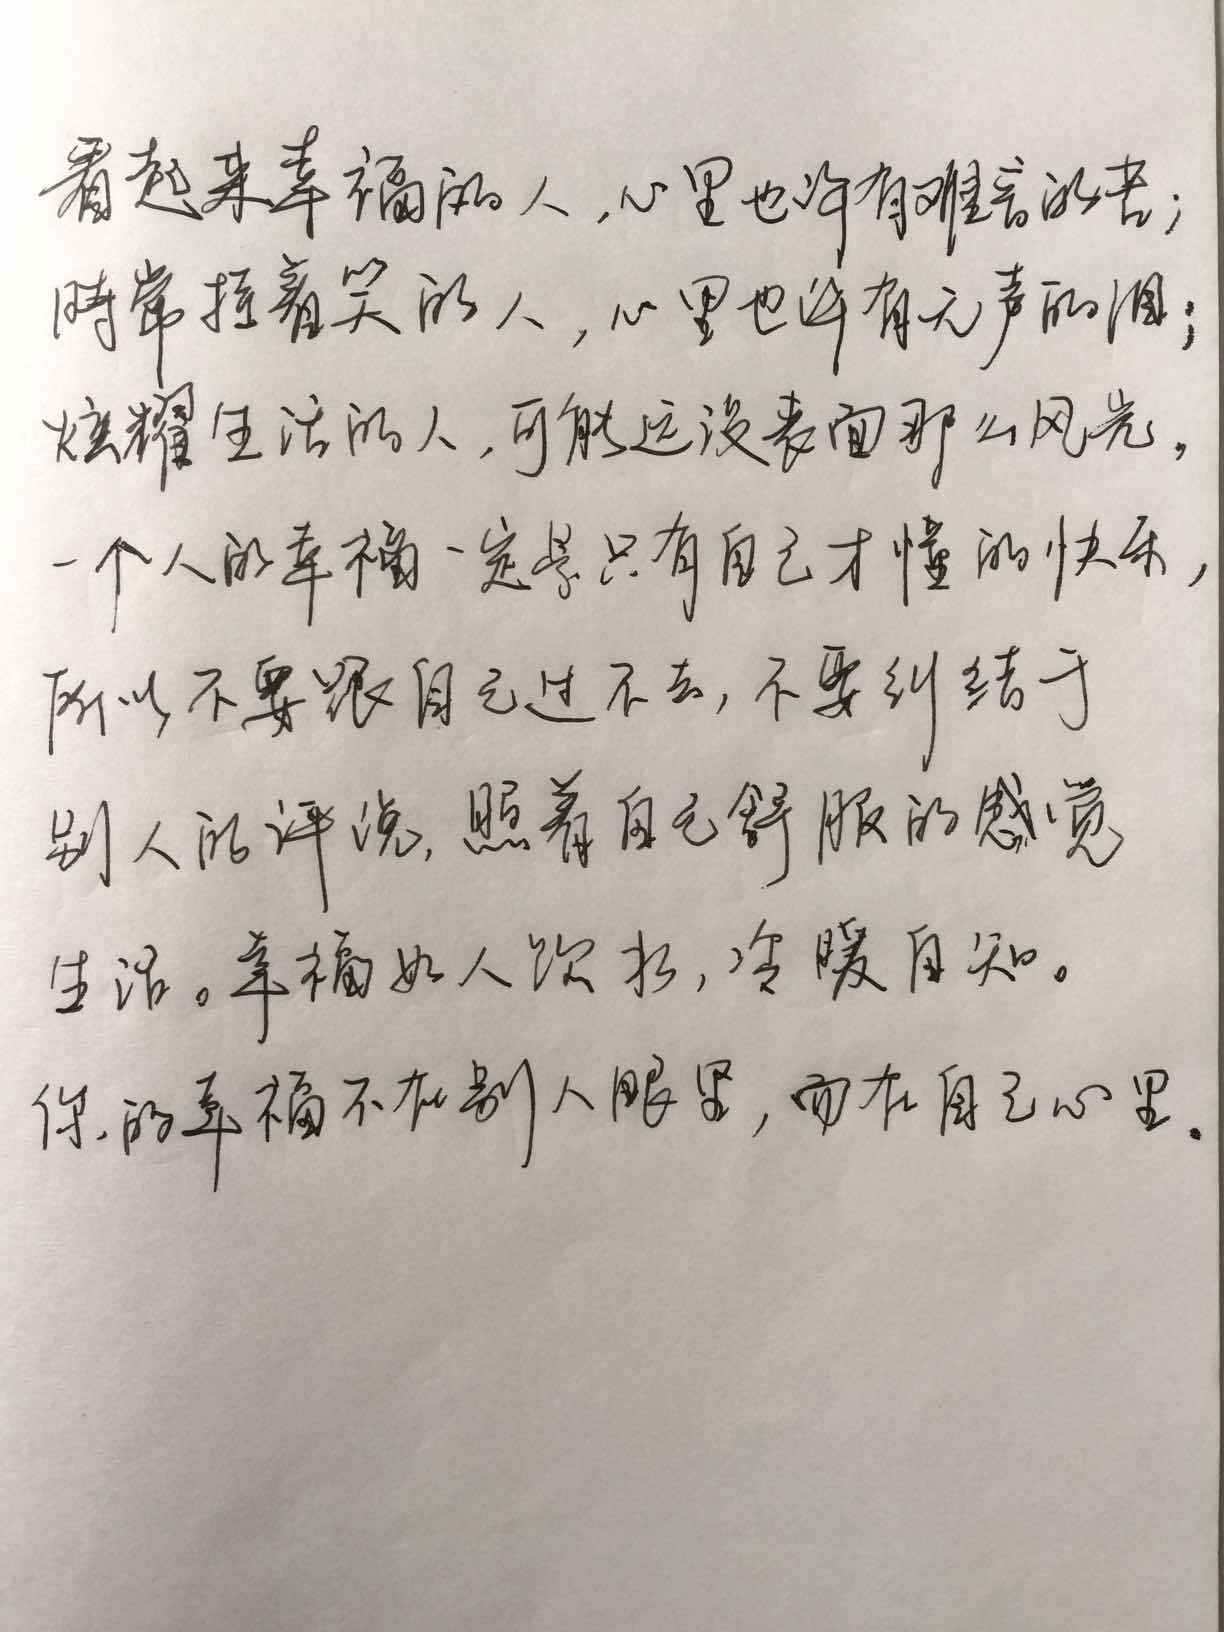 看起来幸福的人，心里也许有难言的苦；
時常挂着笑的人，心里也许有无声的泪；
炫耀生活的人，可能远没表面那么风光。
一个人的幸福一定是只有自己才懂的快乐，
所以不要跟自己过不去，不要纠结于
别人的评说，照着自己舒服的感觉
生活。幸福如人饮水，冷暖自知。
你的幸福不在别人眼里，而在自己心里.